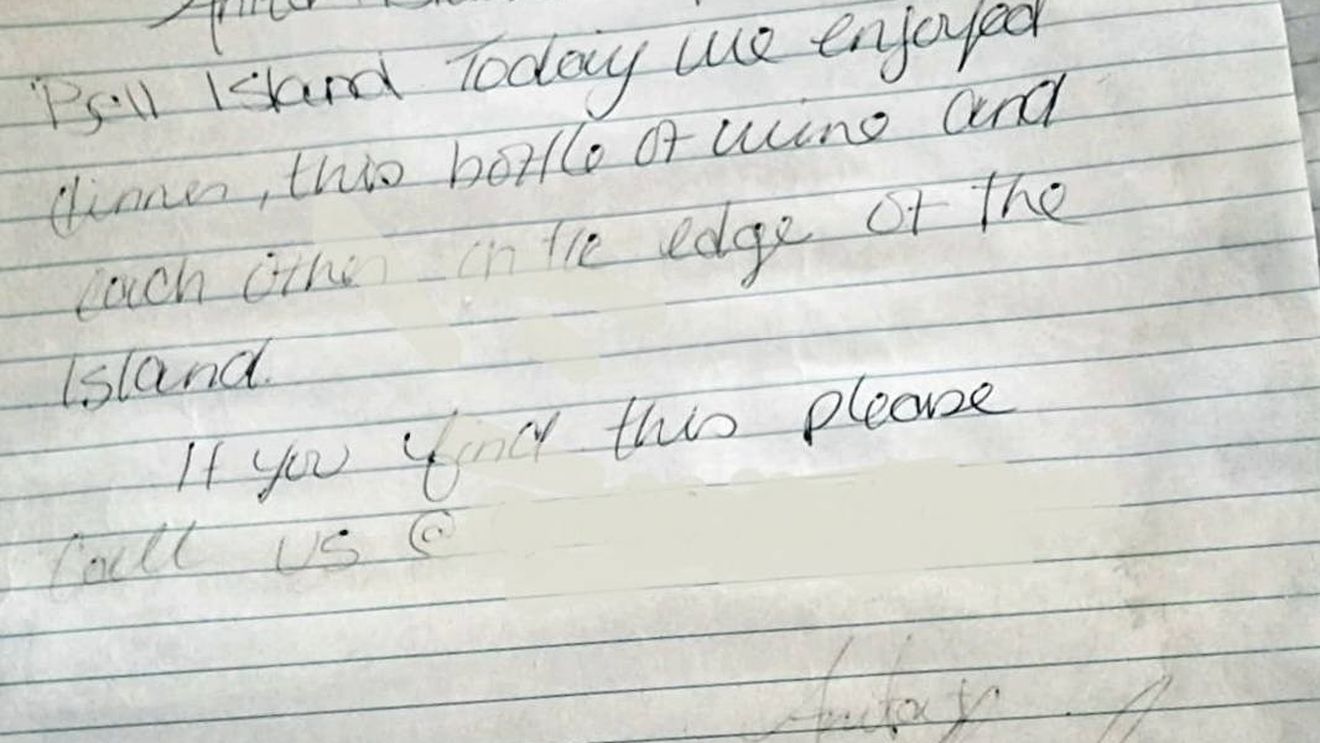 Bell Island Today we enjoyed
dinner, this bottle of wine and
each other on the edge of the
Island.
If you find this please
Call us @
Anita &